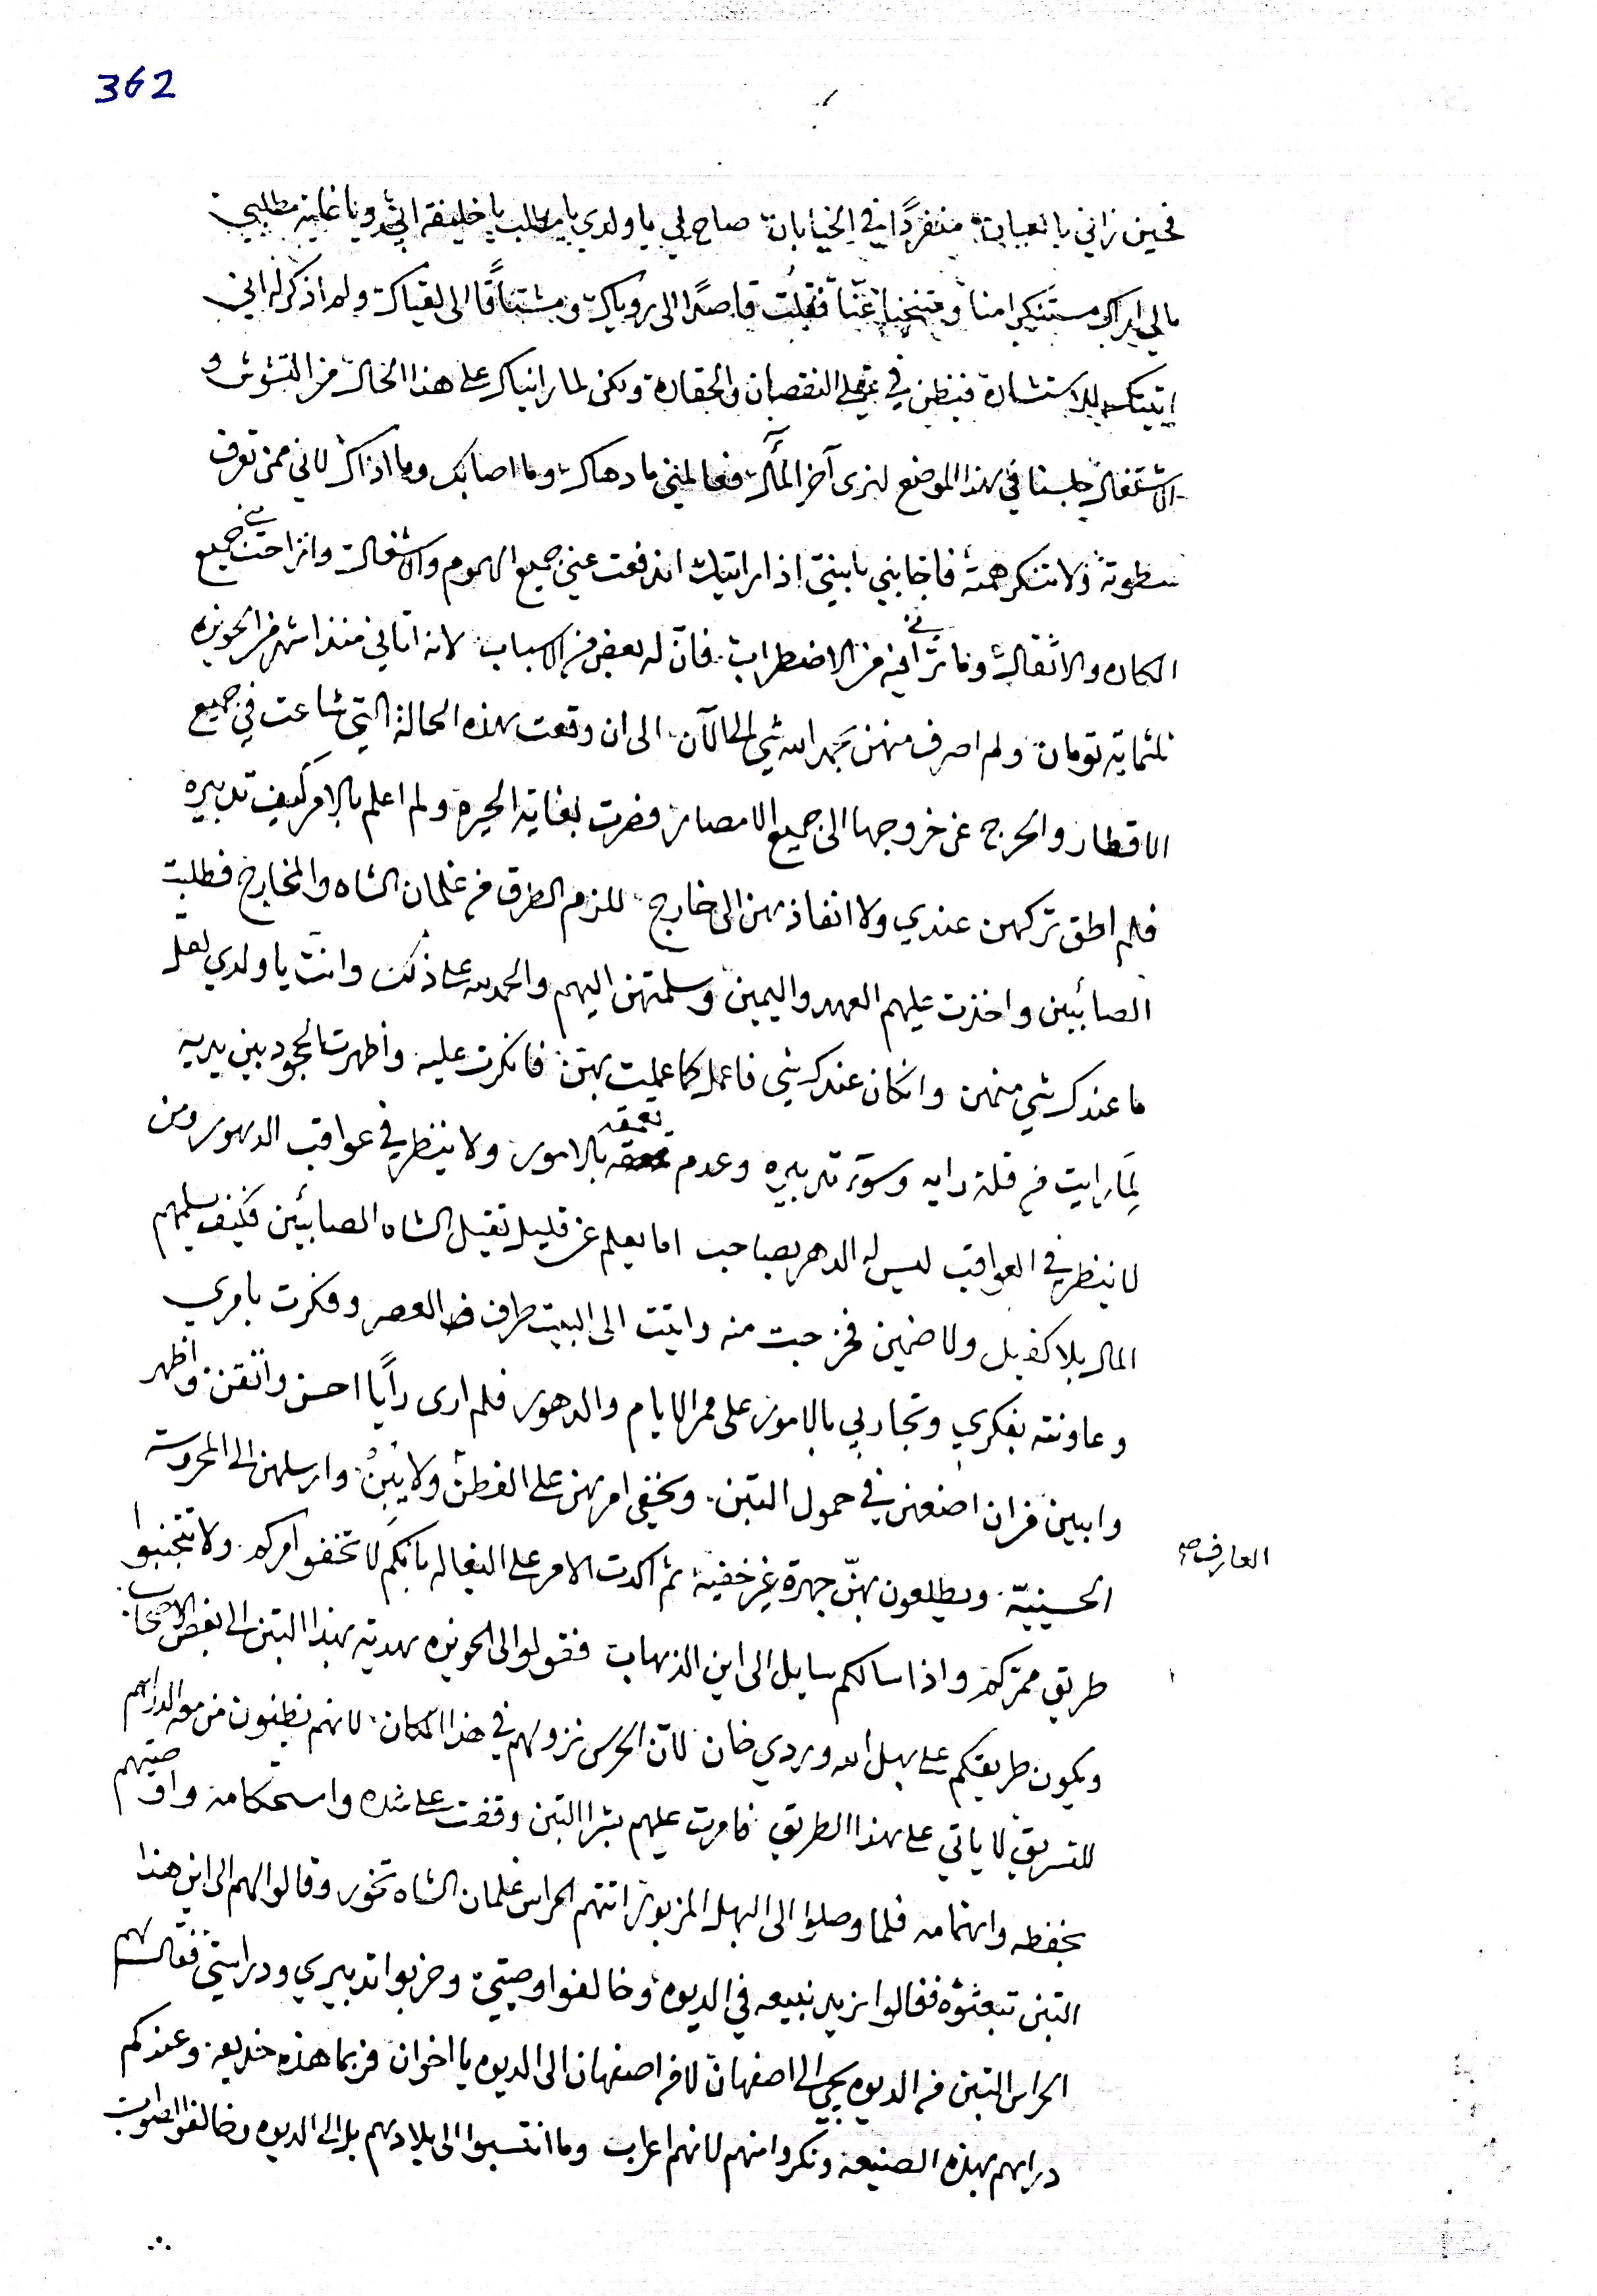 362
فحين راني بالعيان منفردًا في الخيابان صاح لي يا ولدي يا مطلب يا خليفة ابي ويا غاية مطلبي
مالي اراك مستنكرا منا ومتنحيا عنّا فقلت قاصدًا الى روياك ومشتاقًا الى لقياك ولم اذكر له اني
اتيتك للاستشارة فيظن في عقلي النقصان والحقارة ولكن لما رايناك على هذا الحال من التشوش و
الاشتغال جلسنا في هذا الموضع لنرى آخر المآل فعالمني ما دهاك وما اصابك وما اذاك لاني ممن تعرف
سطوته ولا تنكر همته فاجابني يا بني اذا رايتك اندفعت عني جميع الهموم والاشغال وانزاحت عني جميع
المكاره والاثقال وما تراني فيه من الاضطراب فان له بعض من الاسباب لانه اتاني منذ اشهر من الحويزه
ثلثماية تومان ولم اصرف منهن بحمد الله شي الى الآن الى ان وقعت هذه الحالة التي شاعت في جميع
الاقطار والحرج عن خروجها الى جميع الامصار فصرت بغاية الحيره ولم اعلم بالامر كيف تدبيره
فلم اطق تركهن عندي ولا انفاذهن الى خارج للزم الطرق من غلمان الشاه والمخارج فطلبت
الصابئين واخذت عليهم العهد واليمين وسلمتهن اليهم والحمد لله على ذلك وانت يا ولدي لعل
ما عندك شي منهن وانكان عندك شي فاعمل كما عملت بهن فانكرت عليه واظهرت الجحود بين يديه
لِمَا رايت من قلة رايه وسوء تدبيره وعدم تعمقه بالامور ولا ينظر في عواقب الدهور ومن
لا ينظر في العواقب ليس له الدهر بصاحب اما يعلم عن قليل تقيل الشاه الصابئين فكيف يسلمهم
المال بلا كفيل ولا ضمين فخرجت منه واتيت الى البيت طرف من العصر وفكرت بامري
وعاونته بفكري وتجاربي بالامور على ممر الايام والدهور فلم ارى رأيًا احسن واتقن واظهر
وابين من ان اضعهن في حمول التبن ويخفى امرهن على الفطن ولا يبين وارسلهن الى المحروسه
الحسينيّه ويطلعون بهنّ جهرة غير خفية ثم اكدت الامر على البغاله بانكم لا تخفوا امركم ولا تتجنبوا
العارف صح
طريق ممركم واذا سالكم سايل الى اين الذهاب فقولوا الى الحويزه هدية بهذا التبن الى بعض الاصحاب
ويكون طريقكم على بهل الله وردي خان لان الحرس نزولهم في هذا المكان لانهم يظنون من معه الدراهم
للتسريق لا ياتي على هذا الطريق فامرت عليهم بشرا التبن وقفت على شده واستحكامه واوصيتهم
بحفظه واهتمامه فلما وصلوا الى البهل المزبور اتتهم الحراس غلمان الشاه تخور وقالوا لهم الى اين هذا
التبن تبعثوه فقالوا نريد نبيعه في الديوه وخالفوا وصيتي وخربوا تدبيري ودرايتي فقال لهم
الحراس التبن من الديوه يجي الى اصفهان لا من اصفهان الى الديوه يا اخوان فربما هذه خديعه وعندكم
دراهم بهذه الصنيعه ونكروا منهم لانهم اعراب وما انتسبوا الى بلادهم بل الى الديوه وخالفوا الصواب